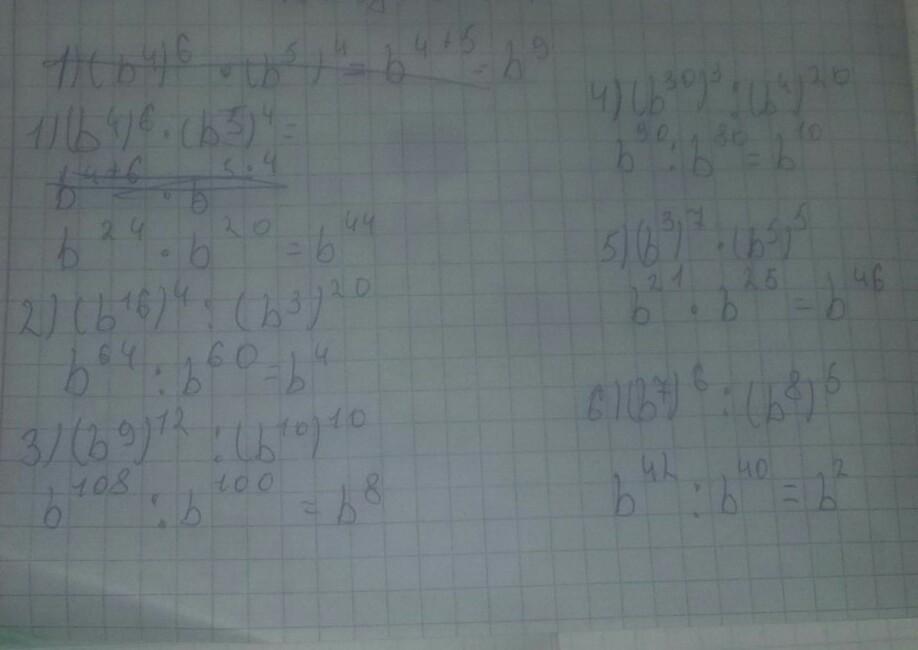 1) (b^4)^6 · (b^5)^4 = b^{4+5} = b^9
1) (b^4)^6 · (b^5)^4 =
b^{4+6} · b^{5·4}
b^{24} · b^{20} = b^{44}
2) (b^{16})^4 : (b^3)^{20}
b^{64} : b^{60} = b^4
3) (b^9)^{12} : (b^{10})^{10}
b^{108} : b^{100} = b^8
4) (b^{30})^3 : (b^4)^{20}
b^{90} : b^{80} = b^{10}
5) (b^3)^7 · (b^5)^5
b^{21} · b^{25} = b^{46}
6) (b^7)^6 : (b^8)^5
b^{42} : b^{40} = b^2